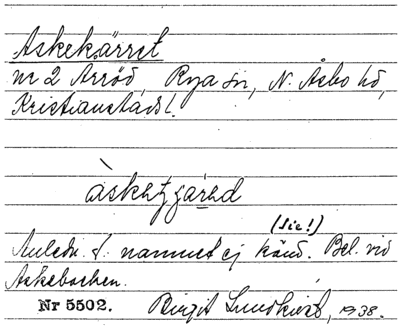 Askekärret
nr 2 Arröd, Rya sn, N. Åsbo hd,
Kristianstads l.
àskehγ̣ar̲e̲d
(Sic!)
Anledn. t. namnet ej känd. Bel. vid
Askebacken.
Nr 5502. Birgit Lundkvist, 1938.